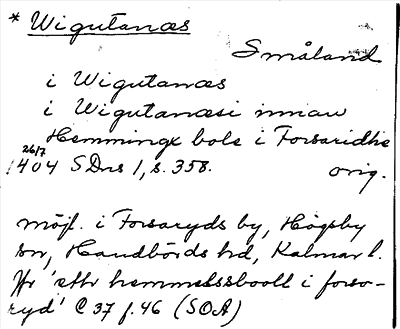 * Wigutanæs
Småland
i Wigutanæs
i Wigutanæsi innan
Hemmingx bole i Forsaridhe
26/7
1404 SDns 1, s. 358. orig.
möjl. i Forsaryds by, Högsby
sn, Handbörds hd, Kalmar l.
Jfr 'ett hemmelssbooll i forso-
ryd' C 37 f. 46 (SOA)